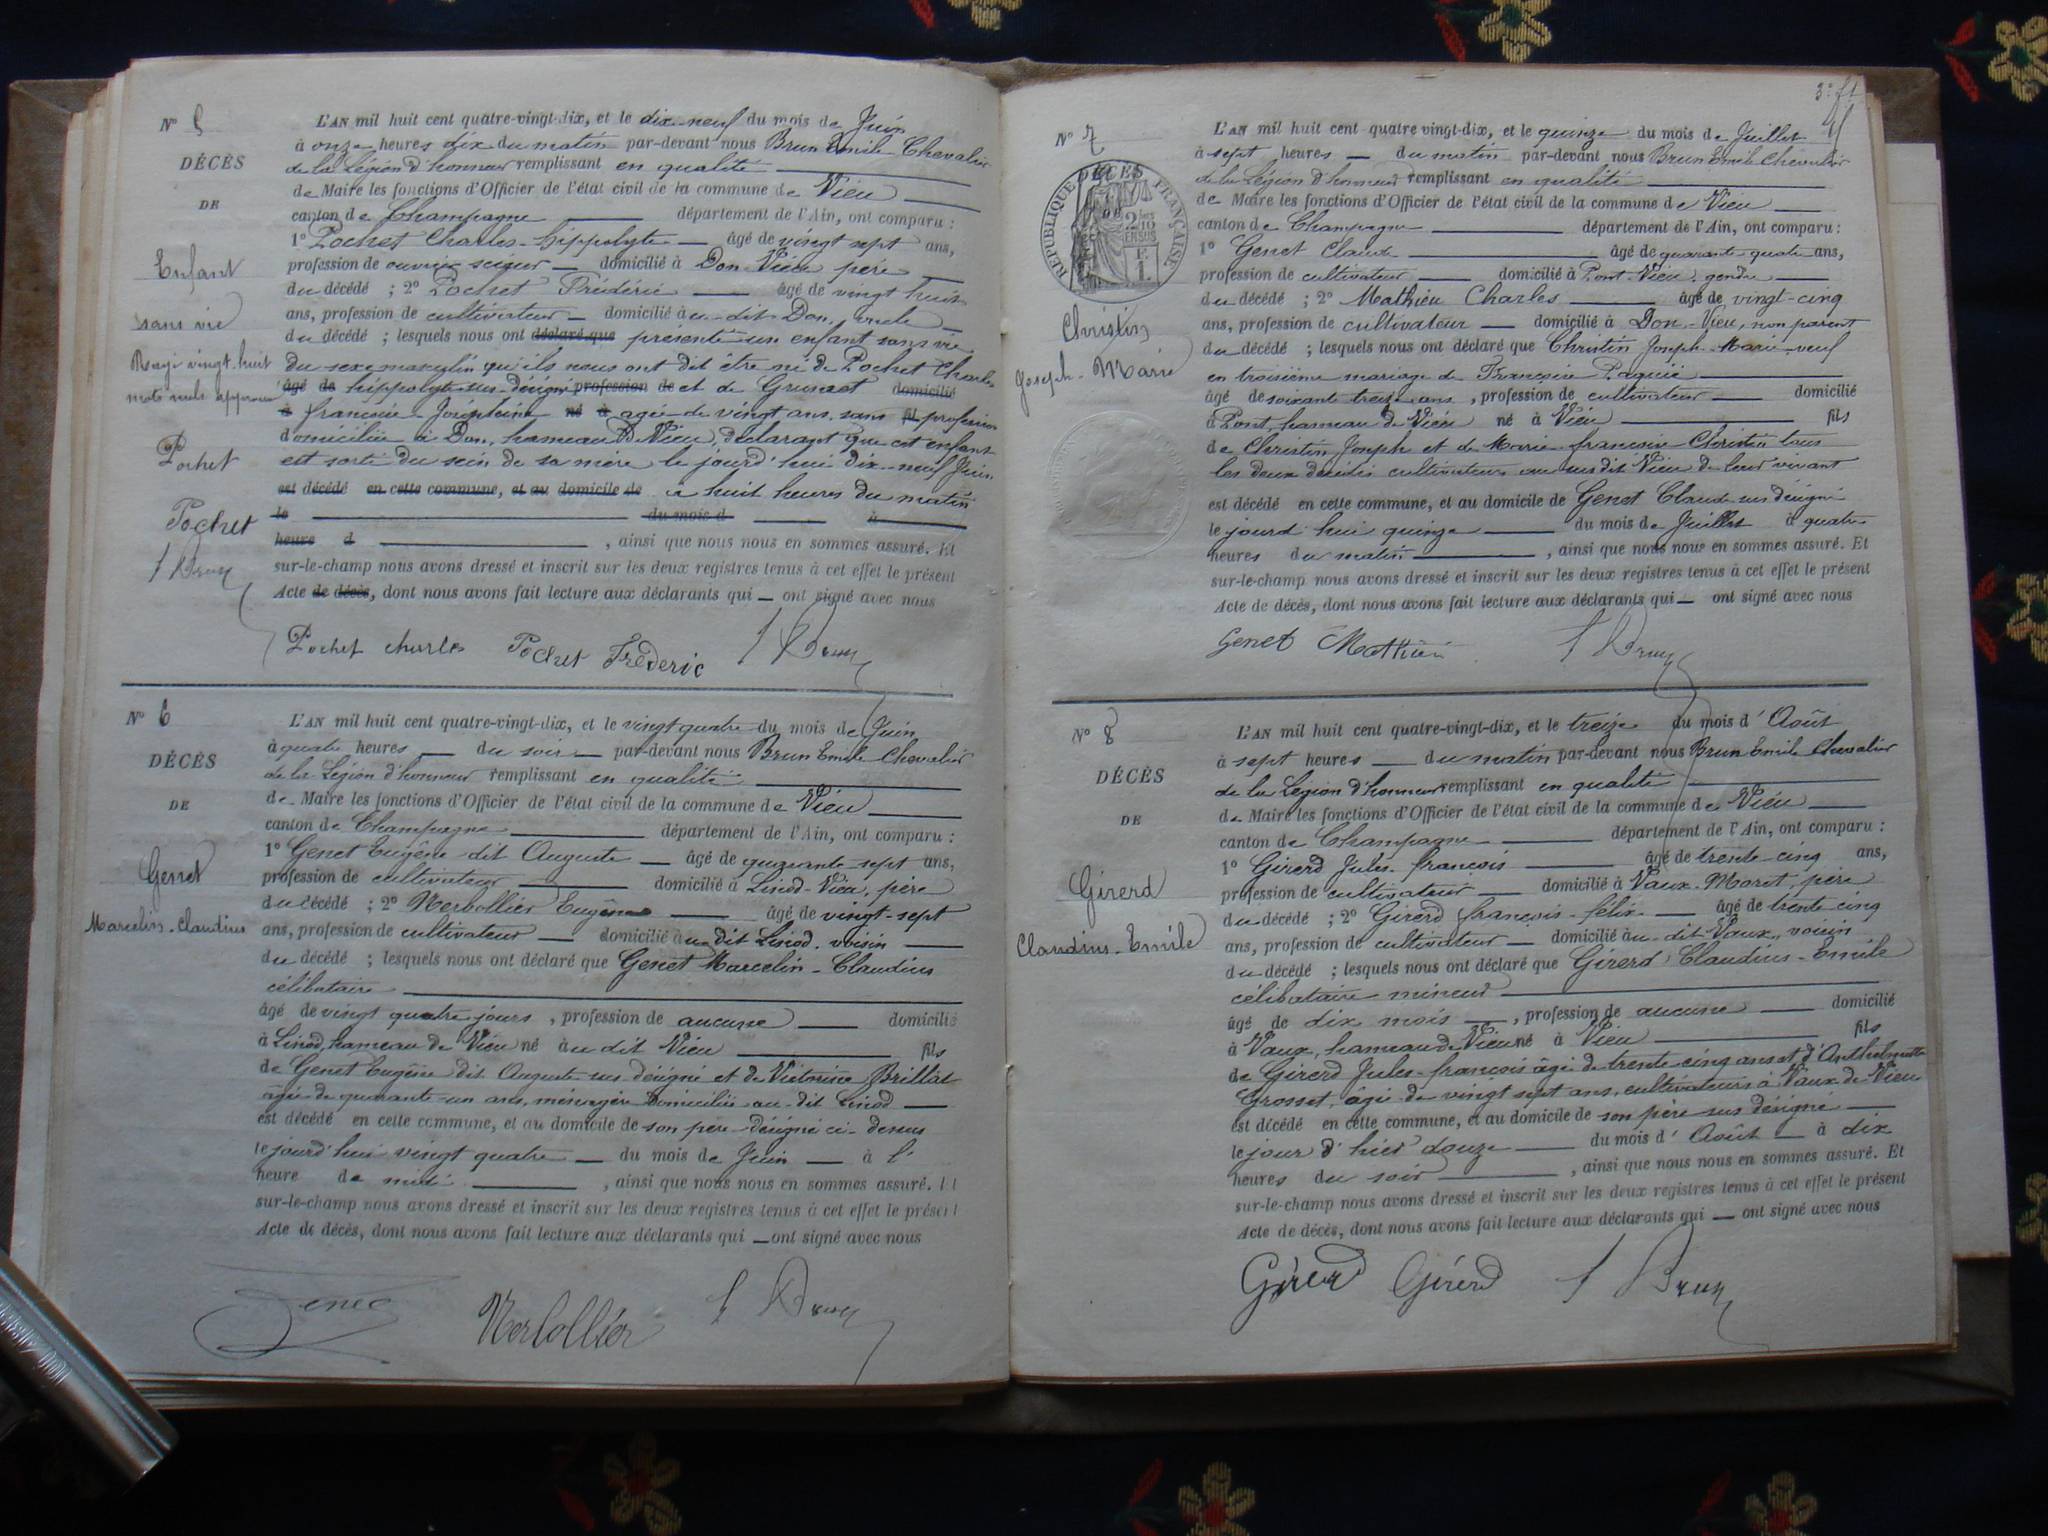 Nº 5
DÉCÈS
DE
Enfant
sans vie
Rayé vingt-huit
mots nuls approuvé
Pochet
Pochet
Brun
L'AN mil huit cent quatre-vingt-dix, et le dix-neuf du mois de Juin
à onze heures dix du matin par-devant nous Brun Emile Chevalier
de la Légion d'honneur remplissant en qualité
de Maire les fonctions d'Officier de l'état civil de la commune de Vieu
canton de Champagne département de l'Ain, ont comparu :
1º Pochet Charles-hippolyte âgé de vingt sept ans,
profession de ouvrier scieur domicilié à Don-Vieu père
du décédé ; 2º Pochet Frédéric âgé de vingt huit
ans, profession de cultivateur domicilié au-dit Don, oncle
du décédé ; lesquels nous ont déclaré que présenté un enfant sans vie
du sexe masculin qu'ils nous ont dit être né de Pochet Charles
âgé de hippolyte sus-désigné profession de et de domicilié
à françoise Joséphine né à agée de vingt ans, sans fil profession
domiciliée à Don, hameau de Vieu, déclarant que cet enfant
est sorti du sein de sa mère le jourd'hui dix-neuf Juin
est décédé en cette commune, et au domicile de à huit heures du matin
le du mois d à
heure d , ainsi que nous nous en sommes assuré. Et
sur-le-champ nous avons dressé et inscrit sur les deux registres tenus à cet effet le présent
Acte de décès, dont nous avons fait lecture aux déclarants qui ont signé avec nous
Pochet charles Pochet Fréderic Brun
Nº 6
DÉCÈS
DE
Genet
Marcelin-Claudius
L'AN mil huit cent quatre-vingt-dix, et le vingt quatre du mois de Juin
à quatre heures du soir par-devant nous Brun Emile Chevalier
de la Légion d'honneur remplissant en qualité
de Maire les fonctions d'Officier de l'état civil de la commune de Vieu
canton de Champagne département de l'Ain, ont comparu :
1º Genet Eugène dit Auguste âgé de quarante-sept ans,
profession de cultivateur domicilié à Linod-Vieu, père
du décédé ; 2º Nerbollier Eugène âgé de vingt-sept
ans, profession de cultivateur domicilié au dit Linod, voisin
du décédé ; lesquels nous ont déclaré que Genet Marcelin-Claudius
célibataire
âgé de vingt quatre jours , profession de aucune domicilié
à Linod, hameau de Vieu né au dit Vieu fils
de Genet Eugène dit Auguste sus-désigné et de Victorine Brillat
agée de quarante-un ans, ménagère domiciliée au-dit Linod
est décédé en cette commune, et au domicile de son père désigné ci-dessus
le jourd'hui vingt quatre du mois de Juin à l'
heure de midi , ainsi que nous nous en sommes assuré. Et
sur-le-champ nous avons dressé et inscrit sur les deux registres tenus à cet effet le présent
Acte de décès, dont nous avons fait lecture aux déclarants qui ont signé avec nous
Genet Nerbollier Brun
3e ft
Nº 7
DÉCÈS
RÉPUBLIQUE FRANÇAISE
2/10 EN SUS
1 F.
Christin
Joseph-Marie
L'AN mil huit cent quatre vingt-dix, et le quinze du mois de Juillet
à sept heures du matin par-devant nous Brun Emile Chevalier
de la Légion d'honneur remplissant en qualité
de Maire les fonctions d'Officier de l'état civil de la commune de Vieu
canton de Champagne département de l'Ain, ont comparu :
1º Genet Claude âgé de quarante quatre ans,
profession de cultivateur domicilié à Pont-Vieu, gendre
du décédé ; 2º Mathieu Charles âgé de vingt-cinq
ans, profession de cultivateur domicilié à Don-Vieu, non parent
du décédé ; lesquels nous ont déclaré que Christin Joseph-Marie, veuf
en troisième mariage de Françoise
âgé de soixante treize ans , profession de cultivateur domicilié
à Pont, hameau de Vieu né à Vieu fils
de Christin Joseph et de Marie-françoise Christin tous
les deux décédés cultivateurs au susdit Vieu de leur vivant
est décédé en cette commune, et au domicile de Genet Claude sus désigné
le jourd'hui quinze du mois de Juillet à quatre
heures du matin , ainsi que nous nous en sommes assuré. Et
sur-le-champ nous avons dressé et inscrit sur les deux registres tenus à cet effet le présent
Acte de décès, dont nous avons fait lecture aux déclarants qui ont signé avec nous
Genet Mathieu Brun
Nº 8
DÉCÈS
DE
Girerd
Claudius-Emile
L'AN mil huit cent quatre-vingt-dix, et le treize du mois d'Août
à sept heures du matin par-devant nous Brun Emile Chevalier
de la Légion d'honneur remplissant en qualité
de Maire les fonctions d'Officier de l'état civil de la commune de Vieu
canton de Champagne département de l'Ain, ont comparu :
1º Girerd Jules-françois âgé de trente-cinq ans,
profession de cultivateur domicilié à Vaux-Moret, père
du décédé ; 2º Girerd françois-félix âgé de trente cinq
ans, profession de cultivateur domicilié au-dit Vaux, voisin
du décédé ; lesquels nous ont déclaré que Girerd Claudius-Emile
célibataire mineur
âgé de dix mois , profession de aucune domicilié
à Vaux, hameau de Vieu né à Vieu fils
de Girerd Jules-françois âgé de trente cinq ans et d'Anthelmette
Grosset, âgée de vingt sept ans, cultivateurs à Vaux de Vieu
est décédé en cette commune, et au domicile de son père sus désigné
le jour d'hier douze du mois d'Août à dix
heures du soir , ainsi que nous nous en sommes assuré. Et
sur-le-champ nous avons dressé et inscrit sur les deux registres tenus à cet effet le présent
Acte de décès, dont nous avons fait lecture aux déclarants qui ont signé avec nous
Girerd Girerd Brun